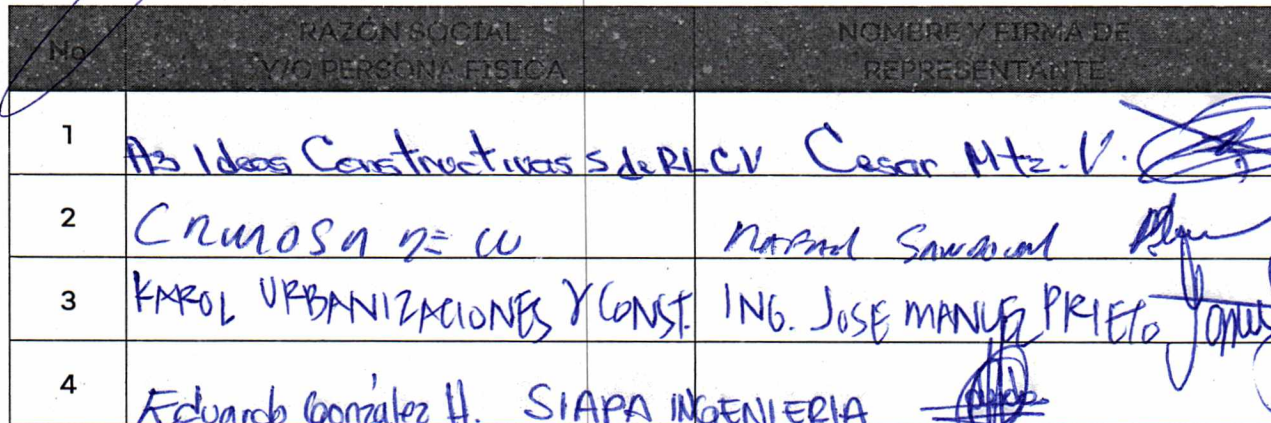 No. RAZÓN SOCIAL Y/O PERSONA FISICA NOMBRE Y FIRMA DE REPRESENTANTE
1 A3 Ideas Constructivas S de RL CV Cesar Mtz. V.
2
3 KAROL URBANIZACIONES Y CONST. ING. JOSE MANUEL PRIETO
4 Eduardo González H. SIAPA INGENIERIA